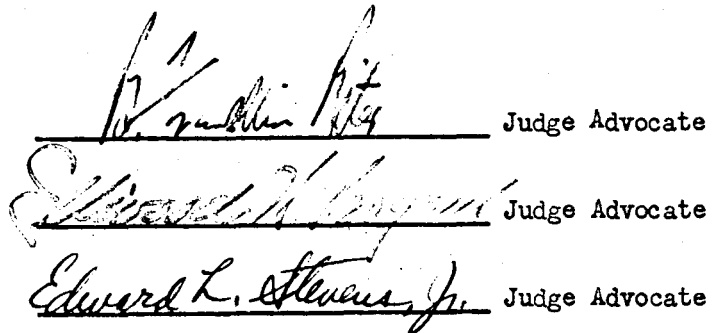 B. Franklin Riter Judge Advocate
Judge Advocate
Edward L. Stevens, Jr. Judge Advocate